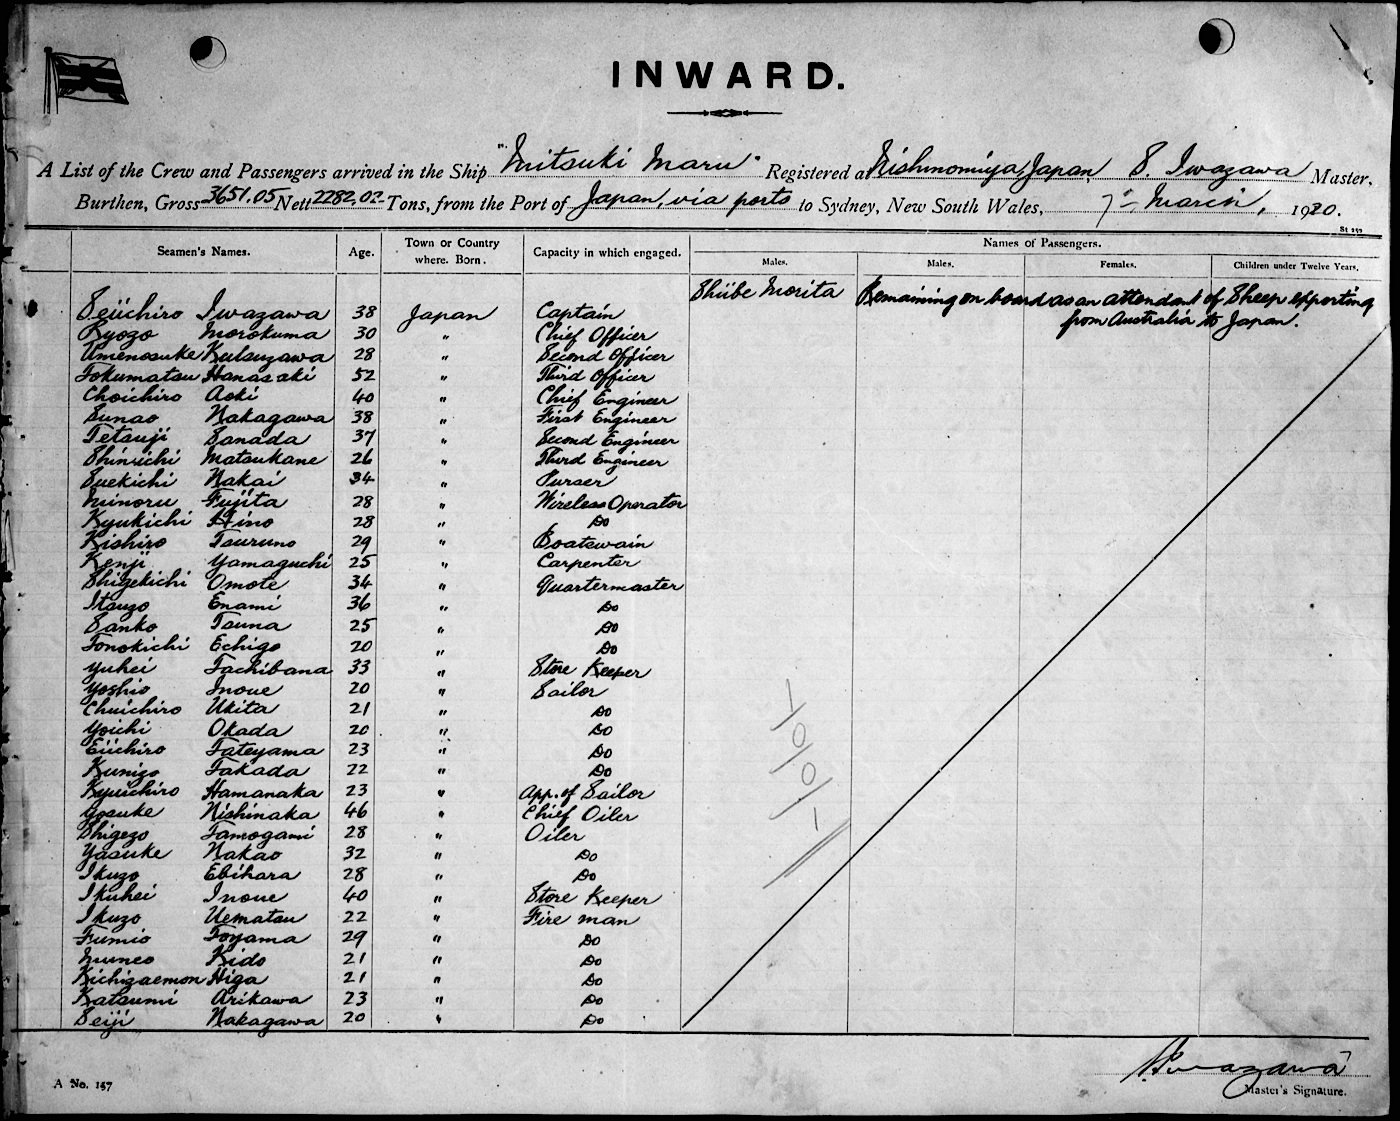 INWARD.
A List of the Crew and Passengers arrived in the Ship "Mitsuki Maru" Registered at Nishinomiya, Japan, S. Iwazawa Master,
Burthen, Gross 3651.05 Nett 2282.02 Tons, from the Port of Japan, via ports to Sydney, New South Wales, 7th March, 1920.
St 252
Seamen's Names. Age. Town or Country where. Born. Capacity in which engaged. Names of Passengers.
Males. Males. Females. Children under Twelve Years.
Shiibe Morita Remaining on board as an attendant of Sheep epporting
from Australia to Japan.
Seiichiro Iwazawa 38 Japan Captain
Kyozo Morokuma 30 " Chief Officer
Umenosuke Kutsuzawa 28 " Second Officer
Tokumatsu Hanasaki 52 " Third Officer
Choichiro Aoki 40 " Chief Engineer
Sunao Nakagawa 38 " First Engineer
Tetsuji Sanada 37 " Second Engineer
Shinichi Matsukane 26 " Third Engineer
Suekichi Nakai 34 " Purser
Minoru Fujita 28 " Wireless Operator
Kyukichi Hino 28 " Do
Kishiro Tsuruno 29 " Boatswain
Kenji Yamaguchi 25 " Carpenter
Shigekichi Omote 34 " Quartermaster
Itsuzo Enami 36 " Do
Sanko Tsuna 25 " Do
Tonokichi Echigo 20 " Do
Yuhei Tachibana 33 " Store Keeper
Yoshio Inoue 20 " Sailor
Chuichiro Ukita 21 " Do
Yoichi Okada 20 " Do
Eiichiro Tateyama 23 " Do
Kunizo Takada 22 " Do
Kyuichiro Hamanaka 23 " App. of Sailor
Yosuke Nishinaka 46 " Chief Oiler
Shigezo Tamogami 28 " Oiler
Yasuke Nakao 32 " Do
Ikuzo Ebihara 28 " Do
Ikuhei Inoue 40 " Store Keeper
Ikuzo Uematsu 22 " Fire man
Fumio Toyama 29 " Do
Muneo Kido 21 " Do
Kichizaemon Higa 21 " Do
Katsumi Arikawa 23 " Do
Seiji Nakagawa 20 " Do
1/0/0/1
S. Iwazawa
A No. 157 Master's Signature.